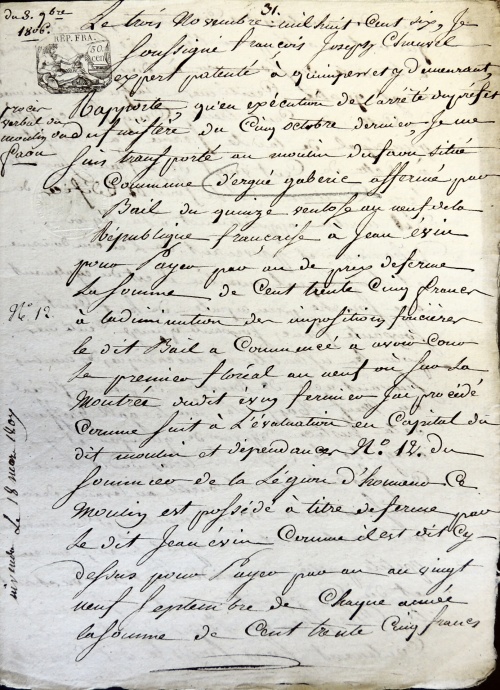 du 3. 9bre
1806.
31.
REP. FRA.
50
cen
Le trois Novembre mil huit Cent six, Je
Soussigné françois Joseph
expert patenté à quimper et y demeurant,
Rapporte qu'en exécution de l'arrêté du préfet
du finistère du Cinq octobre dernier, je me
suis transporté au moulin du faou situé
Commune d'ergué gaberic affermé par
Bail du quinze ventose an neuf de la
République française à Jean évin
pour Payer par an de prix de ferme
La Somme de Cent trente Cinq francs
à la diminution des impositions foncières
le dit Bail a Commencé à avoir Cour
Le premier floréal an neuf où Sur La
Montrée dudit évin fermier j'ai procédé
Comme suit à L'évaluation en Capital du
dit moulin et dépendances No. 12. du
Sommier de la Légion d'honneur Ce
Moulin est possédé à titre de ferme par
Le dit Jean évin Comme il est dit Cy-
dessus pour Payer par an au vingt
neuf Septembre de Chaque année
La Somme de Cent trente Cinq francs
procès
verbal du
moulin du
faou
No. 12
Le 18 mars 1807